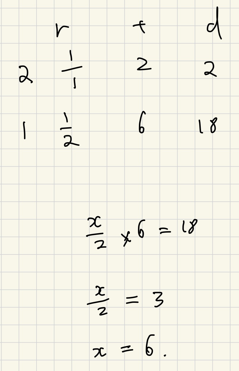 r t d
2 1/1 2 2
1 1/2 6 18
x/2 × 6 = 18
x/2 = 3
x = 6.